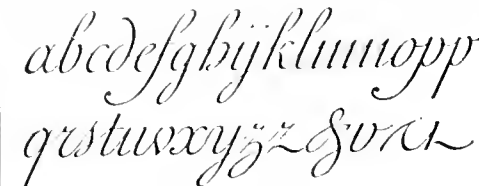 abcdefghijklmnopp
qrstuvxyzz&v